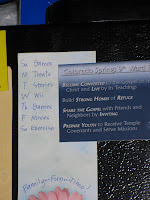 Su Games
M Treats
T Games
W Wii
Th Games
F Movies
Sa Exercise
Family Fun Time!
Colorado Springs 9th Ward
BECOME CONVERTED to the
Christ and LIVE by Its Teachings
BUILD STRONG HOMES OF REFUGE
SHARE THE GOSPEL with Friends
and Neighbors by INVITING
PREPARE YOUTH to Receive Temple
Covenants and Serve Missions